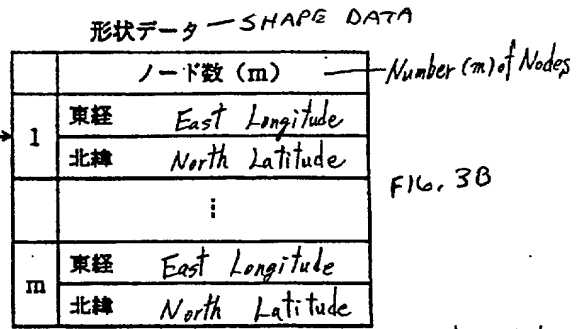 形状データ — SHAPE DATA
ノード数 (m) — Number (m) of Nodes
1 東経 East Longitude
北緯 North Latitude
⋮
FIG. 3B
m 東経 East Longitude
北緯 North Latitude